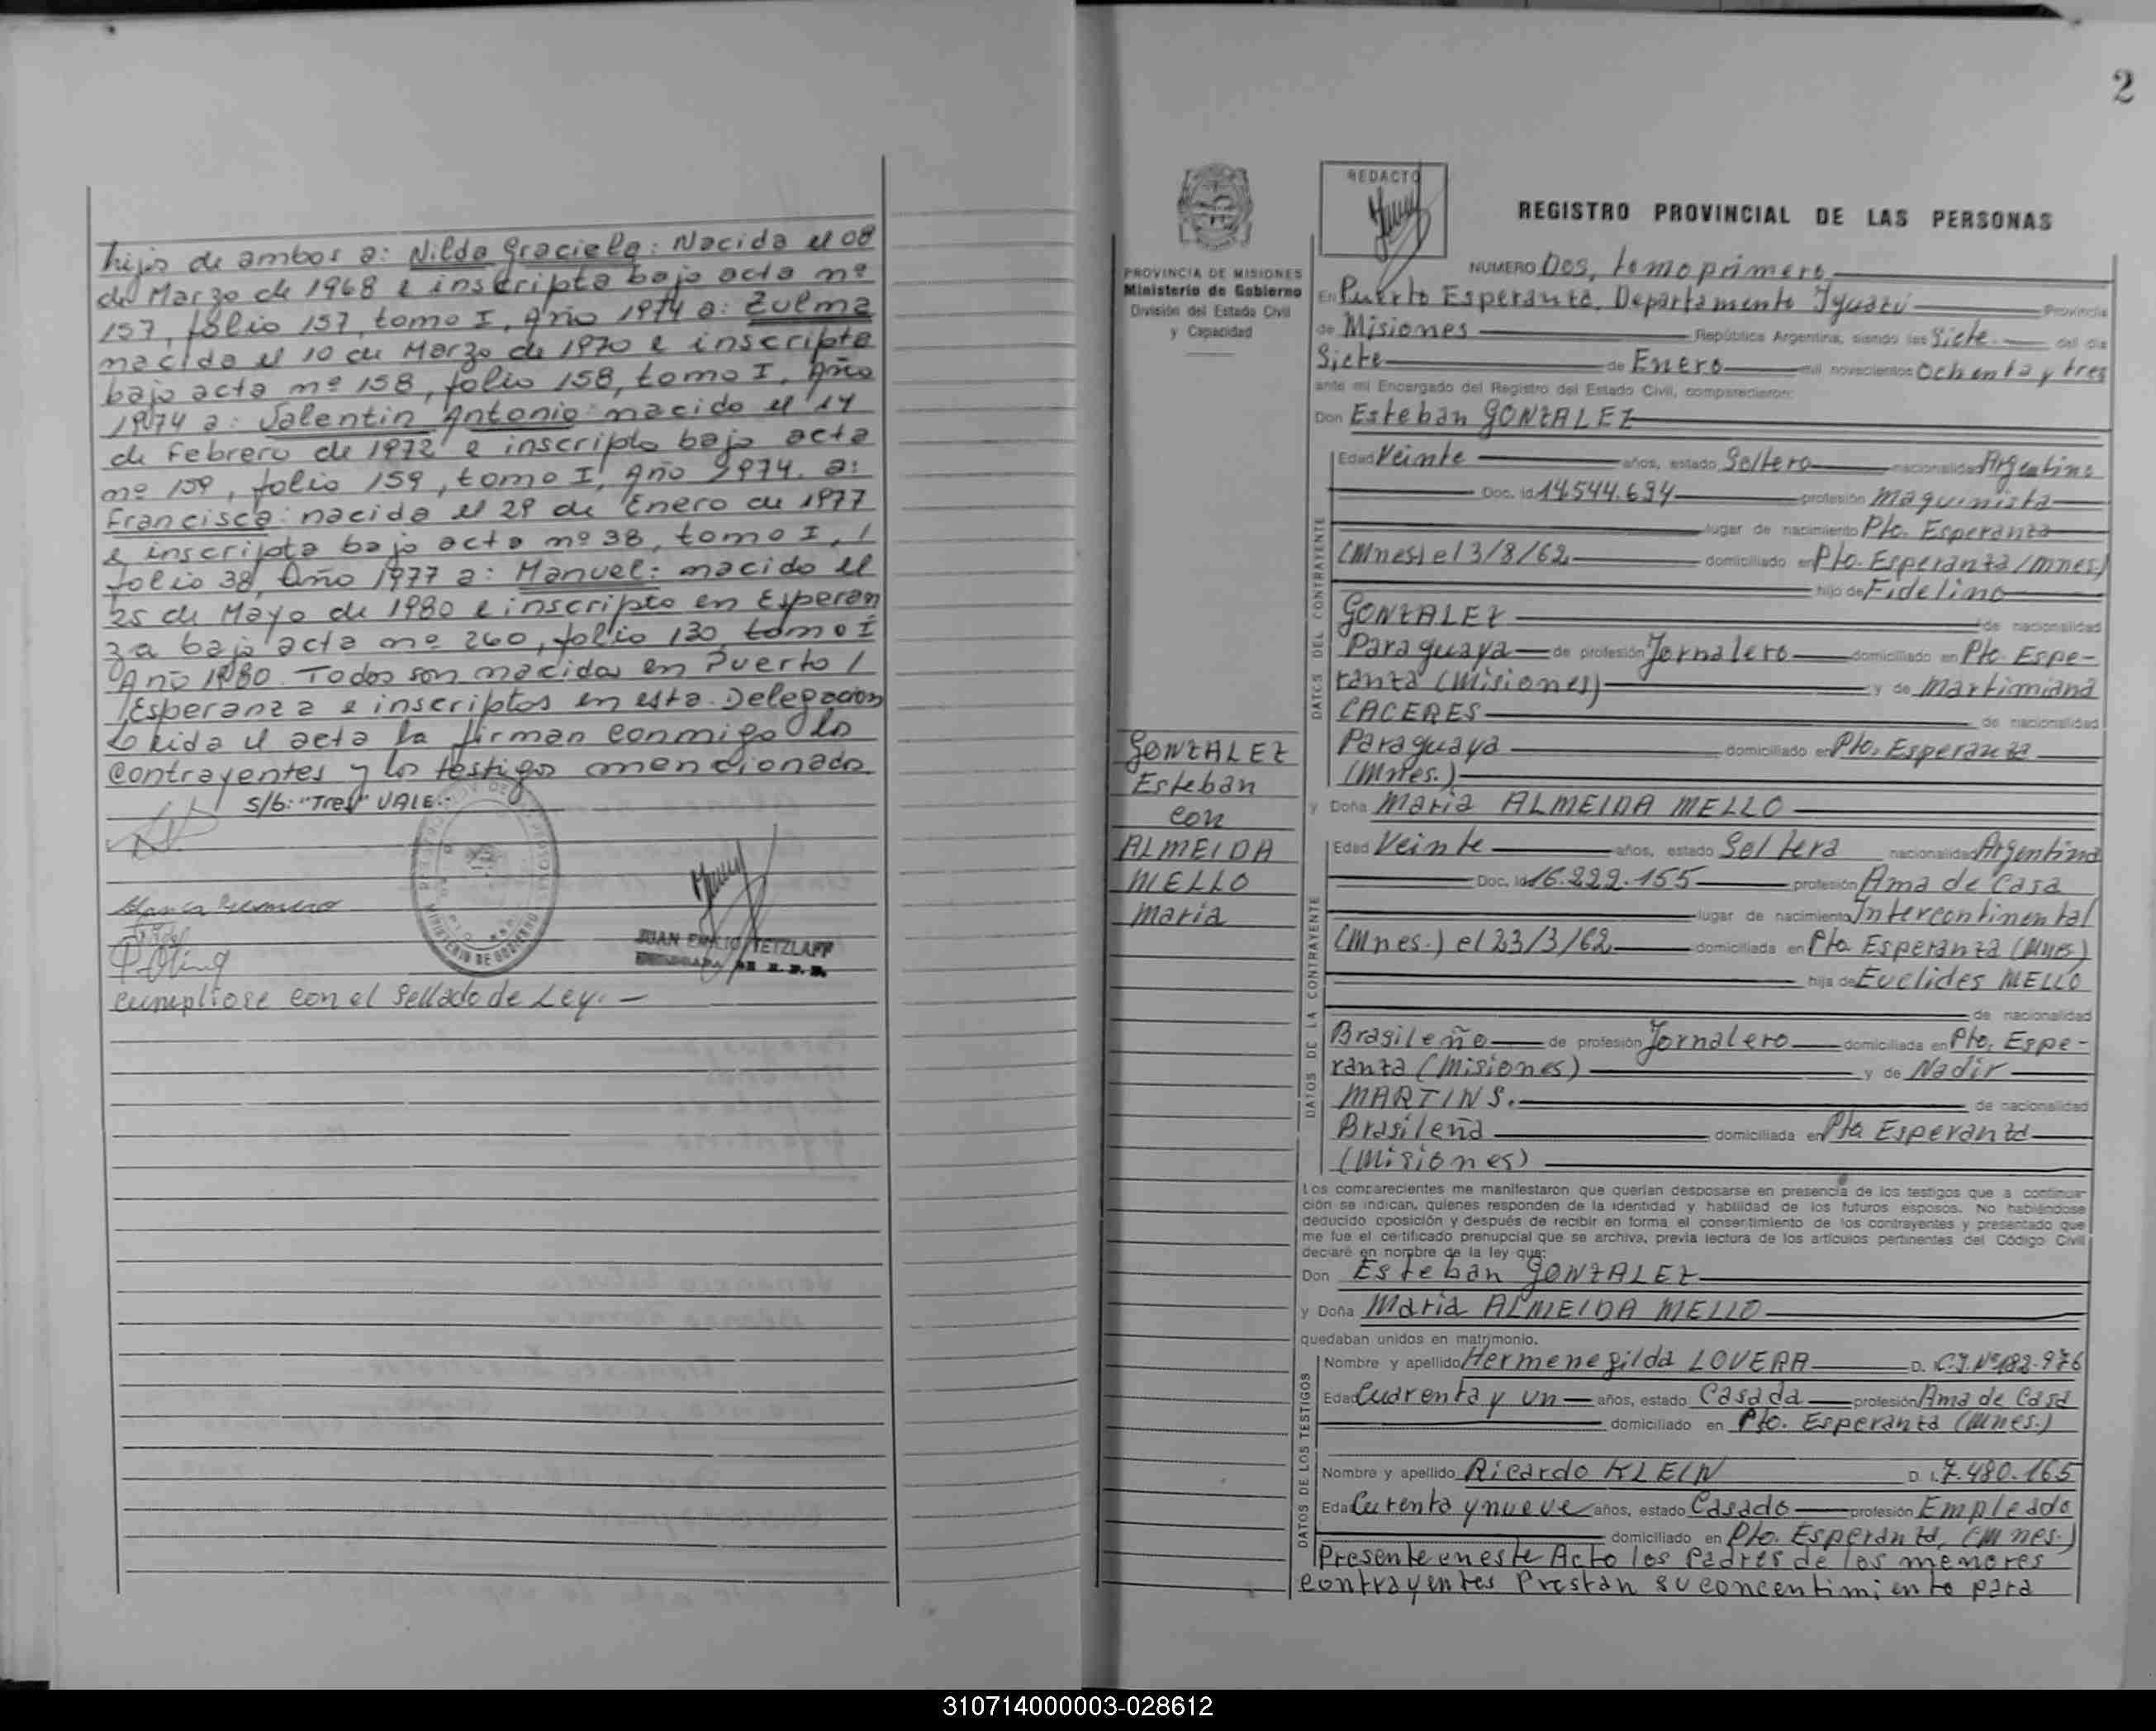 hijos de ambos a: Nilda Graciela: Nacida el 08
de Marzo de 1968 e inscripta bajo acta nº
157, folio 157, tomo I, año 1974 a: Zulma
nacida el 10 de Marzo de 1970 e inscripta
bajo acta nº 158, folio 158, tomo I, Año
1974 a: Valentin Antonio: nacido el 14
de Febrero de 1972 e inscripto bajo acta
nº 159, folio 159, tomo I, Año 1974. a:
Francisca: nacida el 29 de Enero de 1977
e inscripta bajo acta nº 38, tomo I, /
folio 38, Año 1977 a: Manuel: nacido el
25 de Mayo de 1980 e inscripto en Esperan
za bajo acta nº 260, folio 130, tomo I
Año 1980. Todos son nacidos en Puerto /
Esperanza e inscriptos en esta Delegacion
Leida el acta la firman conmigo los
contrayentes y los testigos mencionados.
S/b: "Tres" VALE.-
MINISTERIO DE GOBIERNO
JUAN EMILIO TETZLAFF
cumpliose con el Sellado de Ley. -
2
PROVINCIA DE MISIONES
Ministerio de Gobierno
División del Estado Civil
y Capacidad
GONZALEZ
Esteban
con
ALMEIDA
MELLO
Maria
REDACTO
REGISTRO PROVINCIAL DE LAS PERSONAS
NUMERO Dos, tomo primero
En Puerto Esperanza, Departamento Iguazú Provincia
de Misiones República Argentina, siendo las Siete del día
Siete de Enero mil novecientos Ochenta y tres
ante mi Encargado del Registro del Estado Civil, comparecieron:
Don Esteban GONZALEZ
DATOS DEL CONTRAYENTE
Edad Veinte años, estado Soltero nacionalidad Argentino
Doc. Id. 14.544.694 profesión Maquinista
lugar de nacimiento Pto. Esperanza
(Mnes) el 3/8/62 domiciliado en Pto. Esperanza (Mnes.)
hijo de Fidelino
GONZALEZ de nacionalidad
Paraguaya de profesión Jornalero domiciliado en Pto. Espe-
ranza (Misiones) y de Martimiana
CACERES de nacionalidad
Paraguaya domiciliado en Pto. Esperanza
(Mnes.)
y Doña Maria ALMEIDA MELLO
DATOS DE LA CONTRAYENTE
Edad Veinte años, estado Soltera nacionalidad Argentina
Doc. Id. 16.222.155 profesión Ama de Casa
lugar de nacimiento Intercontinental
(Mnes.) el 23/3/62 domiciliada en Pto Esperanza (Mnes)
hija de Euclides MELLO
de nacionalidad
Brasileño de profesión Jornalero domiciliada en Pto. Espe-
ranza (Misiones) y de Nadir
MARTINS. de nacionalidad
Brasileña domiciliada en Pto Esperanza
(Misiones)
Los comparecientes me manifestaron que querían desposarse en presencia de los testigos que a continua-
ción se indican, quienes responden de la identidad y habilidad de los futuros esposos. No habiéndose
deducido oposición y después de recibir en forma el consentimiento de los contrayentes y presentado que
me fue el certificado prenupcial que se archiva, previa lectura de los artículos pertinentes del Código Civil
declaré en nombre de la ley que:
Don Esteban GONZALEZ
y Doña Maria ALMEIDA MELLO
quedaban unidos en matrimonio.
DATOS DE LOS TESTIGOS
Nombre y apellido Hermenegilda LOVERA D. C.I. Nº 182.976
Edad Cuarenta y un años, estado Casada profesión Ama de Casa
domiciliado en Pto. Esperanza (Mnes.)
Nombre y apellido Ricardo KLEIN D. I. 7.480.165
Edad Curenta y nueve años, estado Casado profesión Empleado
domiciliado en Pto. Esperanza, (Mnes.)
Presente en este Acto los Padres de los menores
contrayentes Prestan su concentimiento para
310714000003-028612